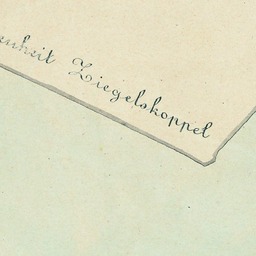 enheit Ziegelskoppel